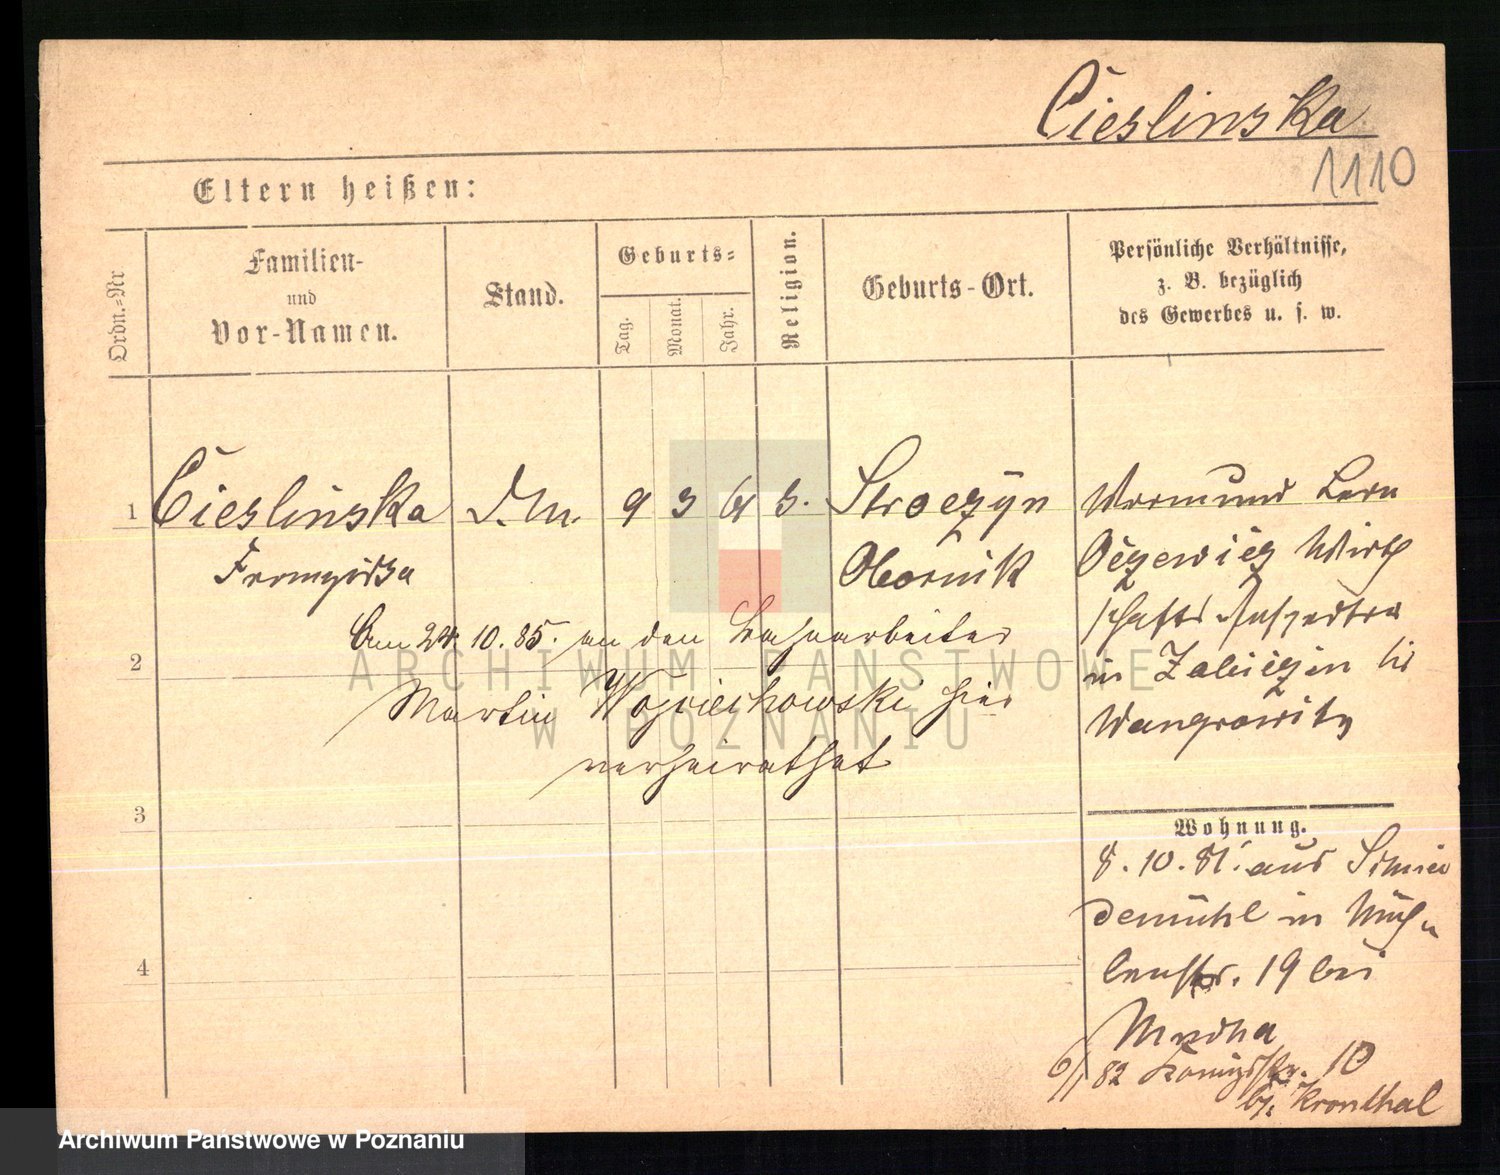 Cieslinska
1110
Eltern heißen:
Ordn.-Nr
Familien-
und
Vor-Namen.
Stand.
Geburts-
Tag.
Monat.
Jahr.
Religion.
Geburts-Ort.
Persönliche Verhältnisse,
z. B. bezüglich
des Gewerbes u. s. w.
1 Cieslinska d.M. 9 3 61
Franziska
Obornik
Vormund
Wirth
schafts Inspector
in
Wangrowitz
2
Am 24. 10. 85. an den Bahnarbeiter
Martin Wojciechowski hier
verheirathet
ARCHIWUM PAŃSTWOWE
W POZNANIU
3
Wohnung.
8. 10. 81. aus Schnei
demühl in Müh
lenstr. 19 bei
4
6/1 82 Königstr. 10
by. Kronthal
Archiwum Państwowe w Poznaniu